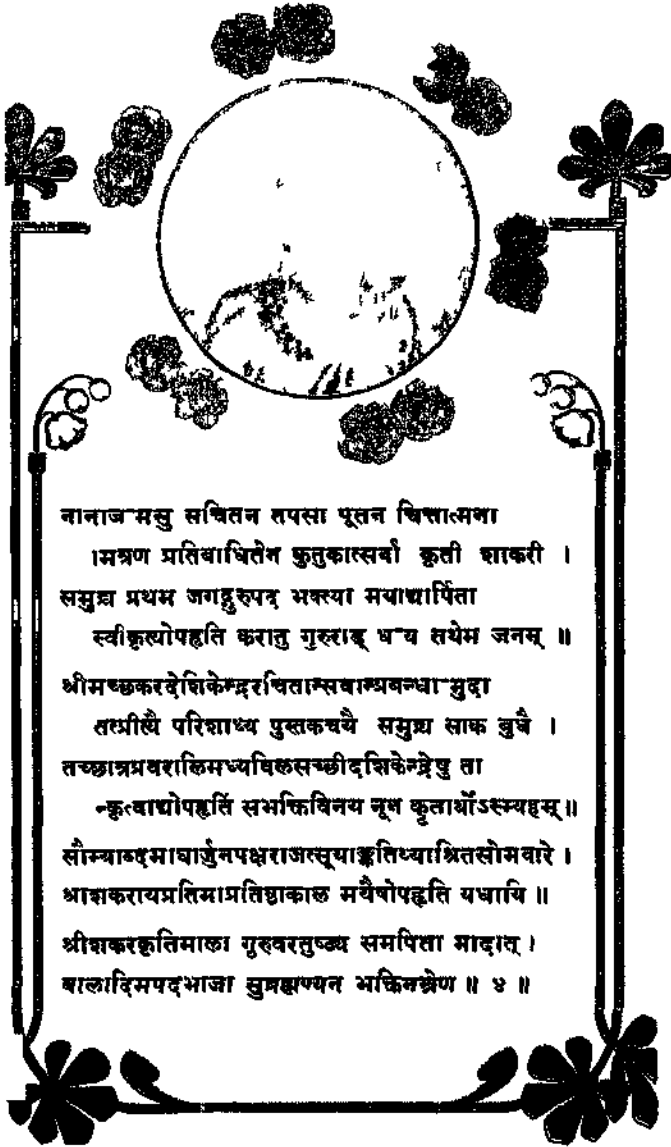 नानाज मसु सचितन तपसा पूतन चित्तात्मना
।मत्रण प्रतिबाधितेन कुतुकात्सर्वा कृती शाकरी ।
समुद्य प्रथम जगद्गुरुपद भक्त्या मयाद्यार्पिता
स्वीकृत्योपहृति करातु गुरुराड् ध य तथेम जनम् ॥
श्रीमच्छकरदेशिकेन्द्ररचितान्सवान्प्रबन्धा मुदा
तत्प्रीत्यै परिशाध्य पुस्तकचयै समुद्य साक बुधै ।
तच्छात्रप्रवरालिमध्यविलसच्छ्रीदशिकेन्द्रेषु ता
न्कृत्वाद्योपहृतिं सभक्तिविनय नून कृतार्थोऽस्म्यहम् ॥
सौम्याब्दमाघार्जुनपक्षराजत्सूयाङ्कतिथ्याश्रितसोमवारे ।
श्राशकरायप्रतिमाप्रतिष्ठाकाल मयैषोपहृति यधायि ॥
श्रीशकरकृतिमाला गुरुवरतुष्ट्य समपिता मादात् ।
बालादिमपदभाजा सुब्रह्मण्यन भक्तिनम्रेण ॥ ४ ॥